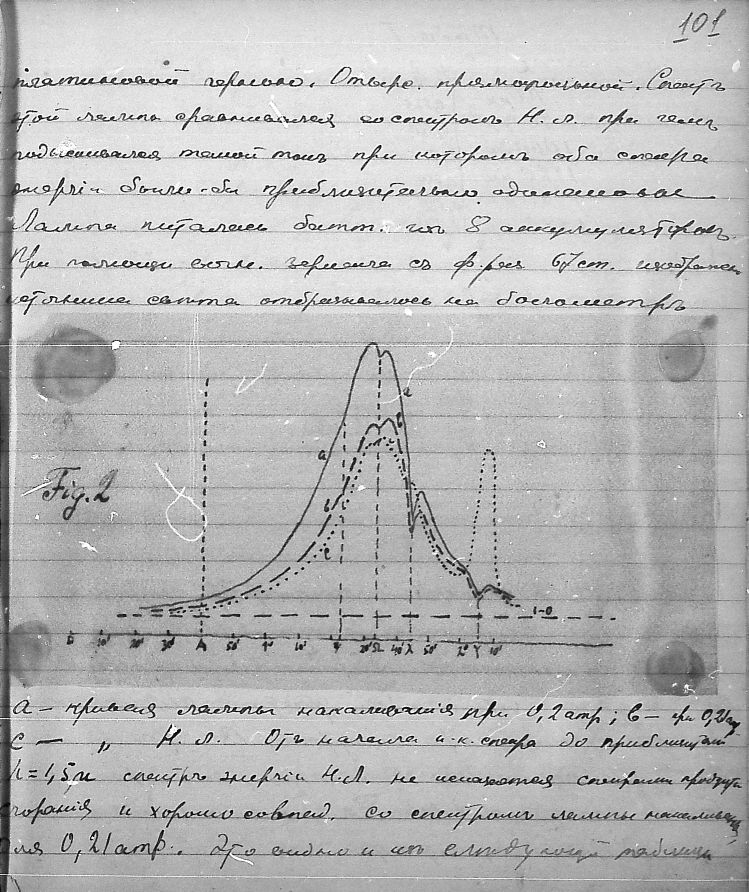 101
платиновой чернью. Отвер. прямоугольной. Спектръ
этой лампы сравнивался со спектромъ Н. Л. при чемъ
подыскивался такой токъ при которомъ оба спектра
энергіи были-бы приблизительно одинаковые
Лампа питалась батт. изъ 8 аккумуляторовъ.
При помощи вогн. зеркала съ ф. раз 67 cm. изображен
источника свѣта отбрасывалось на болометръ
Fig. 2
a
a
b
b
c
I=0
A
Ψ
Ω
X
Y
a — кривая лампы накаливанія при 0,2 amp; b — при 0,21 amp
c — „ Н. Л. Отъ начала и.-к. спектра до приблизит
λ=1,5 μ спектръ энергіи Н. Л. не искажается спектрами продукт
сгоранія и хорошо совпад. со спектромъ лампы накаливан
для 0,21 amp. Это видно и изъ слѣдующей таблицы